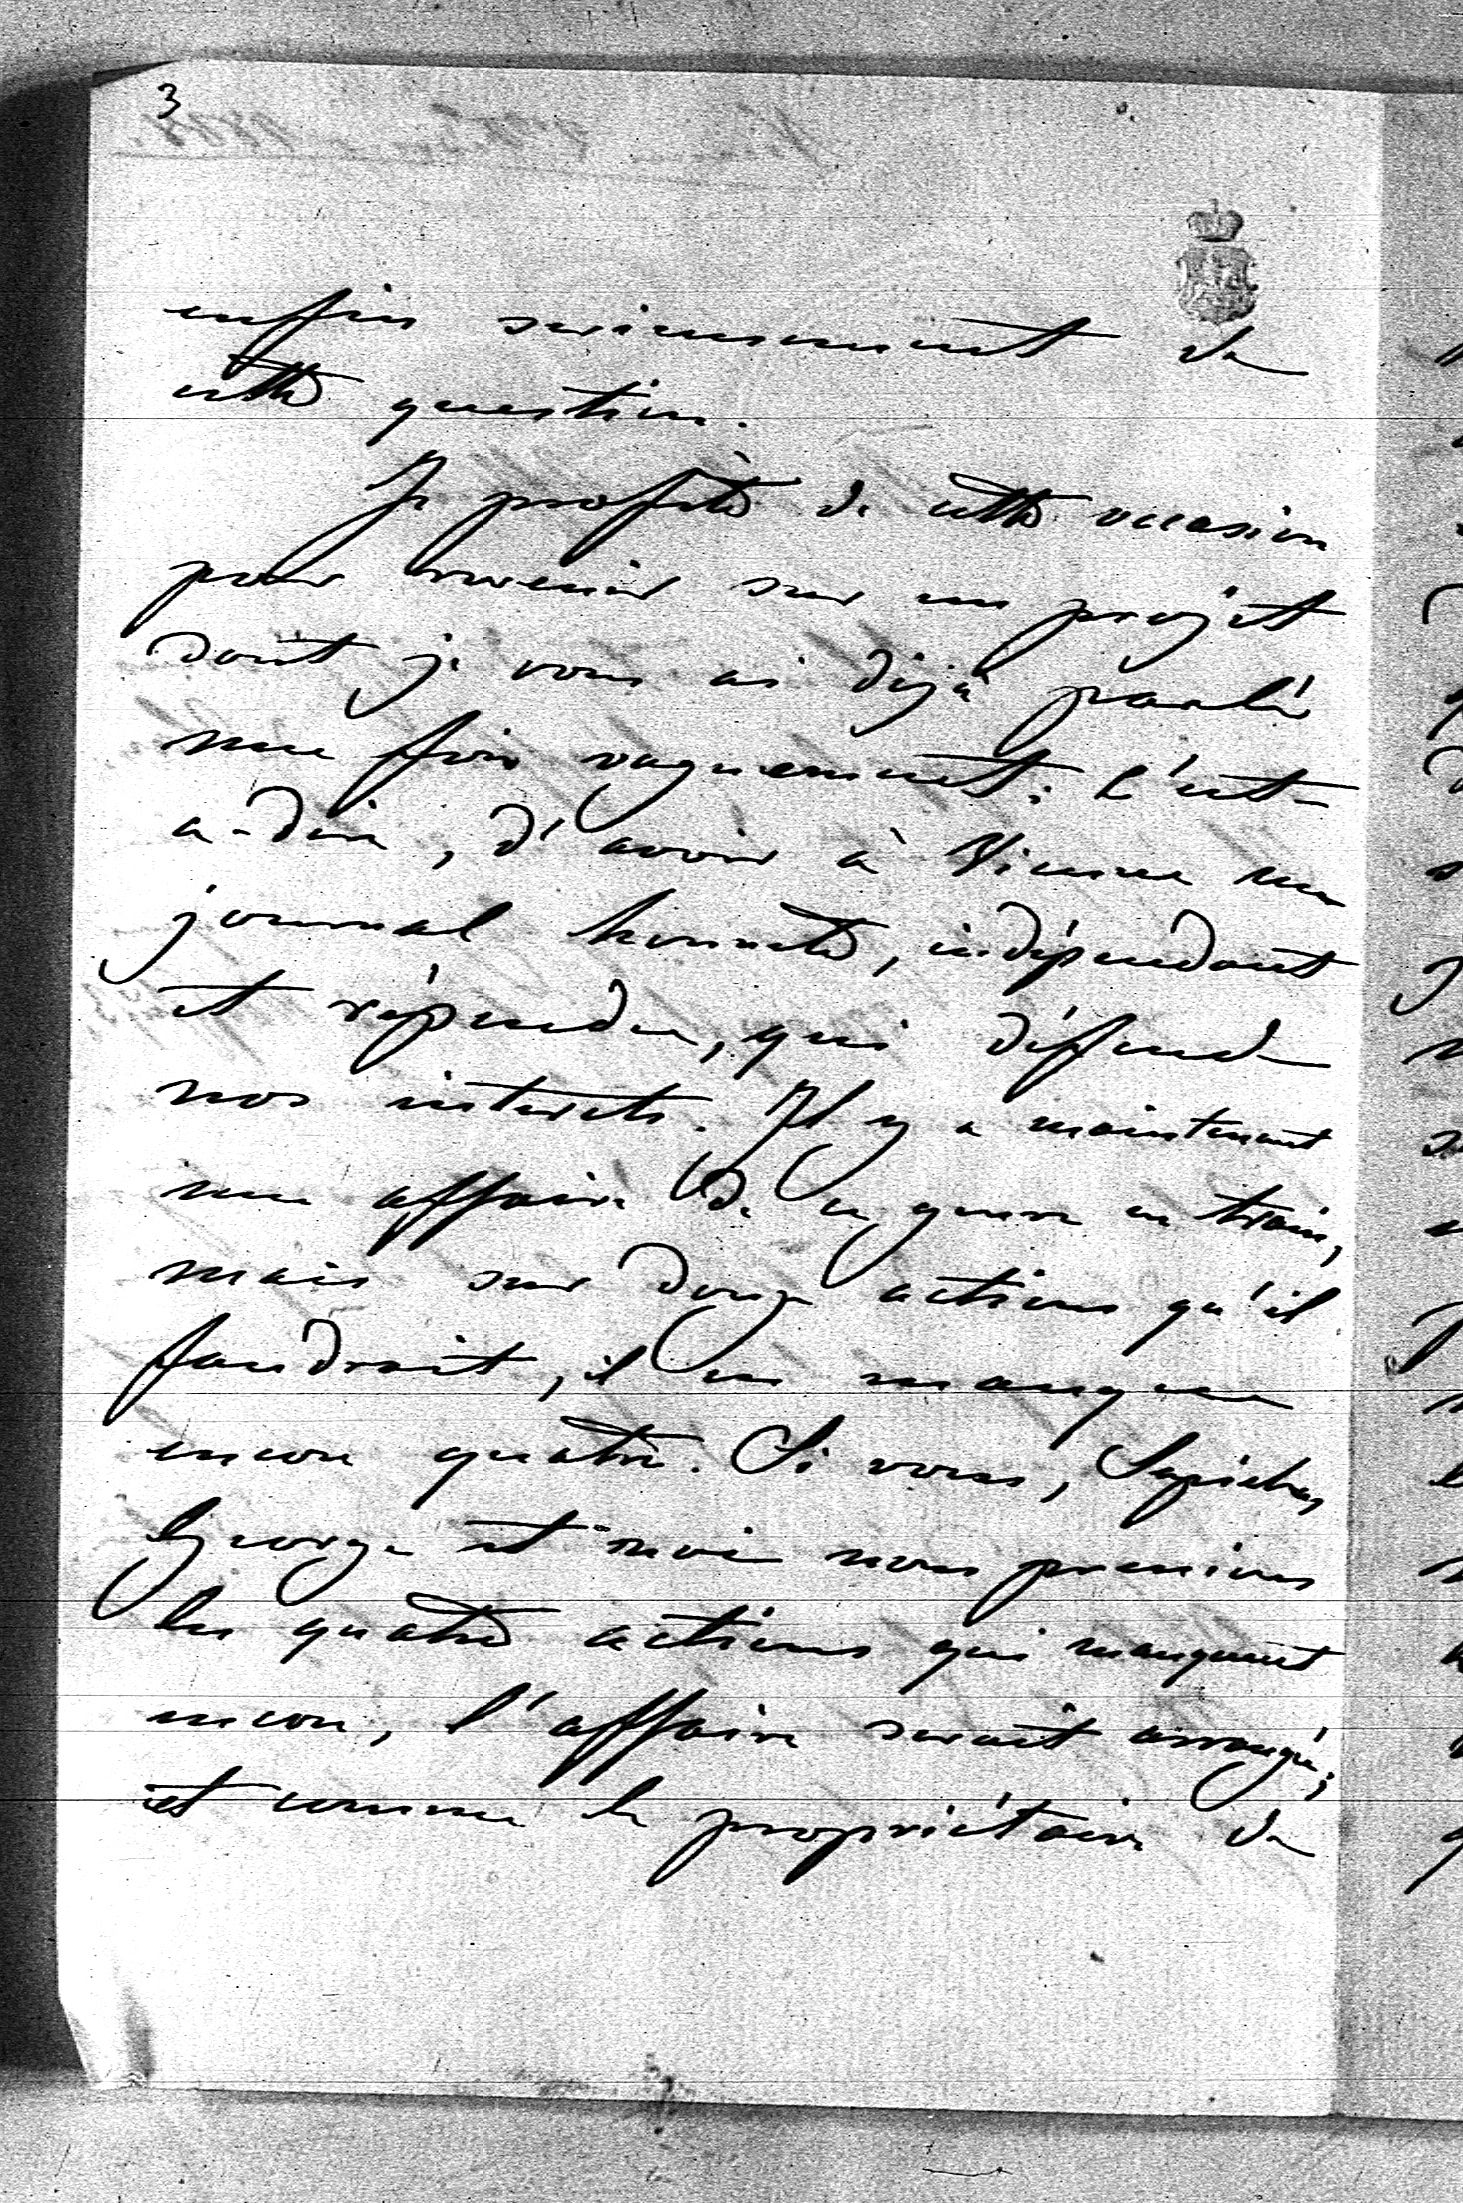 3
enfin serieusement de
cette question.
Je profite de cette occasion
pour revenir sur un projet
dont je vous ai déjà parlé
une fois vaguement: c'est-
a-dire, d'avoir à Vienne un
journal honnete, indépendant
et répendu, qui défend
nos interets. Il y a maintenant
une affaire de ce genre en train,
mais sur douze actions qu'il
faudrait, il en manque
encore quatre. Si vous, Sapieha,
George et moi nous prenions
les quatre actions qui manquent
encore, l'affaire serait arrangée;
et comme le propriétaire de